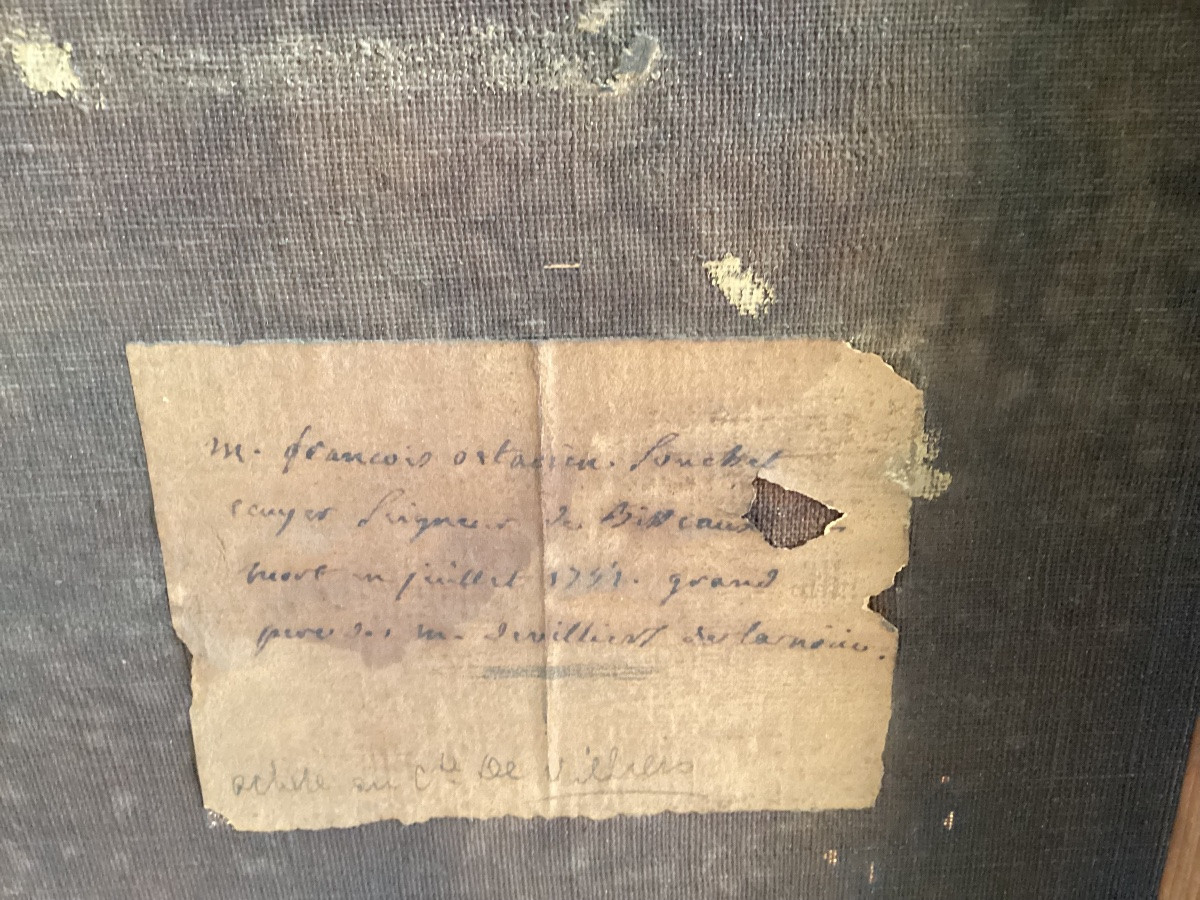 m. francois octavien. Souchet
ecuyer Seigneur de Bisseaux
mort en juillet 1751. grand
pere des m. devilliers de lanoüe.
acheté au Cte De Villiers